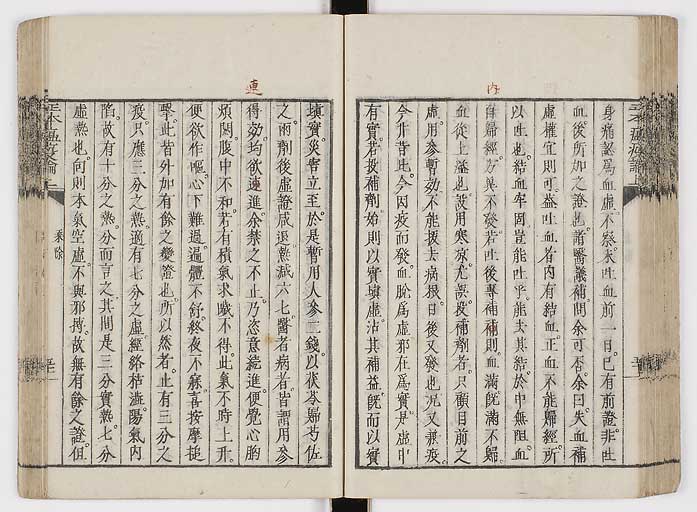 内
身痛認為血虛不察未吐血前一日已有前證非吐
血後所加之證也諸醫議補問余可否余曰失血補
虛權宜則可蓋吐血者內有結血正血不能歸經所
以吐也結血牢固豈能吐乎能去其結於中無阻血
自歸經方兾不發若吐後專補補則血滿既滿不歸
血從上溢也設用寒凉尤誤投補劑者只顧目前之
虛用參暫効不能拔去病根日後又發也况又兼疫
今非昔比今因疫而發血脫為虛邪在為實是虛中
有實若投補劑始則以實填虛沾其補益既而以實
連
填實災害立至於是暫用人參二錢以茯苓歸芍佐
之兩劑後虛證咸退熱減六七醫者病者皆謂用參
得効均欲速進余禁之不止乃恣意續進便覺心胸
煩悶腹中不和若有積氣求噦不得此氣不時上升
便欲作嘔心下難過遍體不舒終夜不寐喜按摩搥
擊此皆外加有餘之變證也所以然者止有三分之
疫只應三分之熱適有七分之虛經絡枯澁陽氣內
陷故有十分之熱分而言之其間是三分實熱七分
虛熱也向則本氣空虛不與邪搏故無有餘之證但
乘除